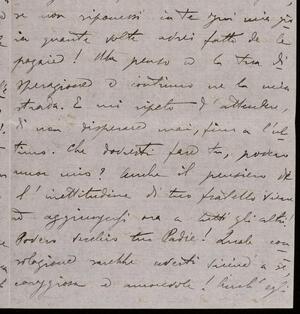 se non riponessi in te ogni mia gio
ia quante volte avrei fatto de le
pazzie! Ma penso a la tua di
sperazione e continuo ne la mia
strada. E mi ripeto d'attendere,
di non disperare mai, fino a l'ul-
timo. Che dovresti fare tu, povero
amor mio? Anche il pensiero de
l'inettitudine di tuo fratello viene
ad aggiungersi ora a tutti gli altri!
Povero vecchio tuo Padre! Quale con
solazione sarebbe averti vicino a sè
coraggiosa e amorevole! Anch'egli